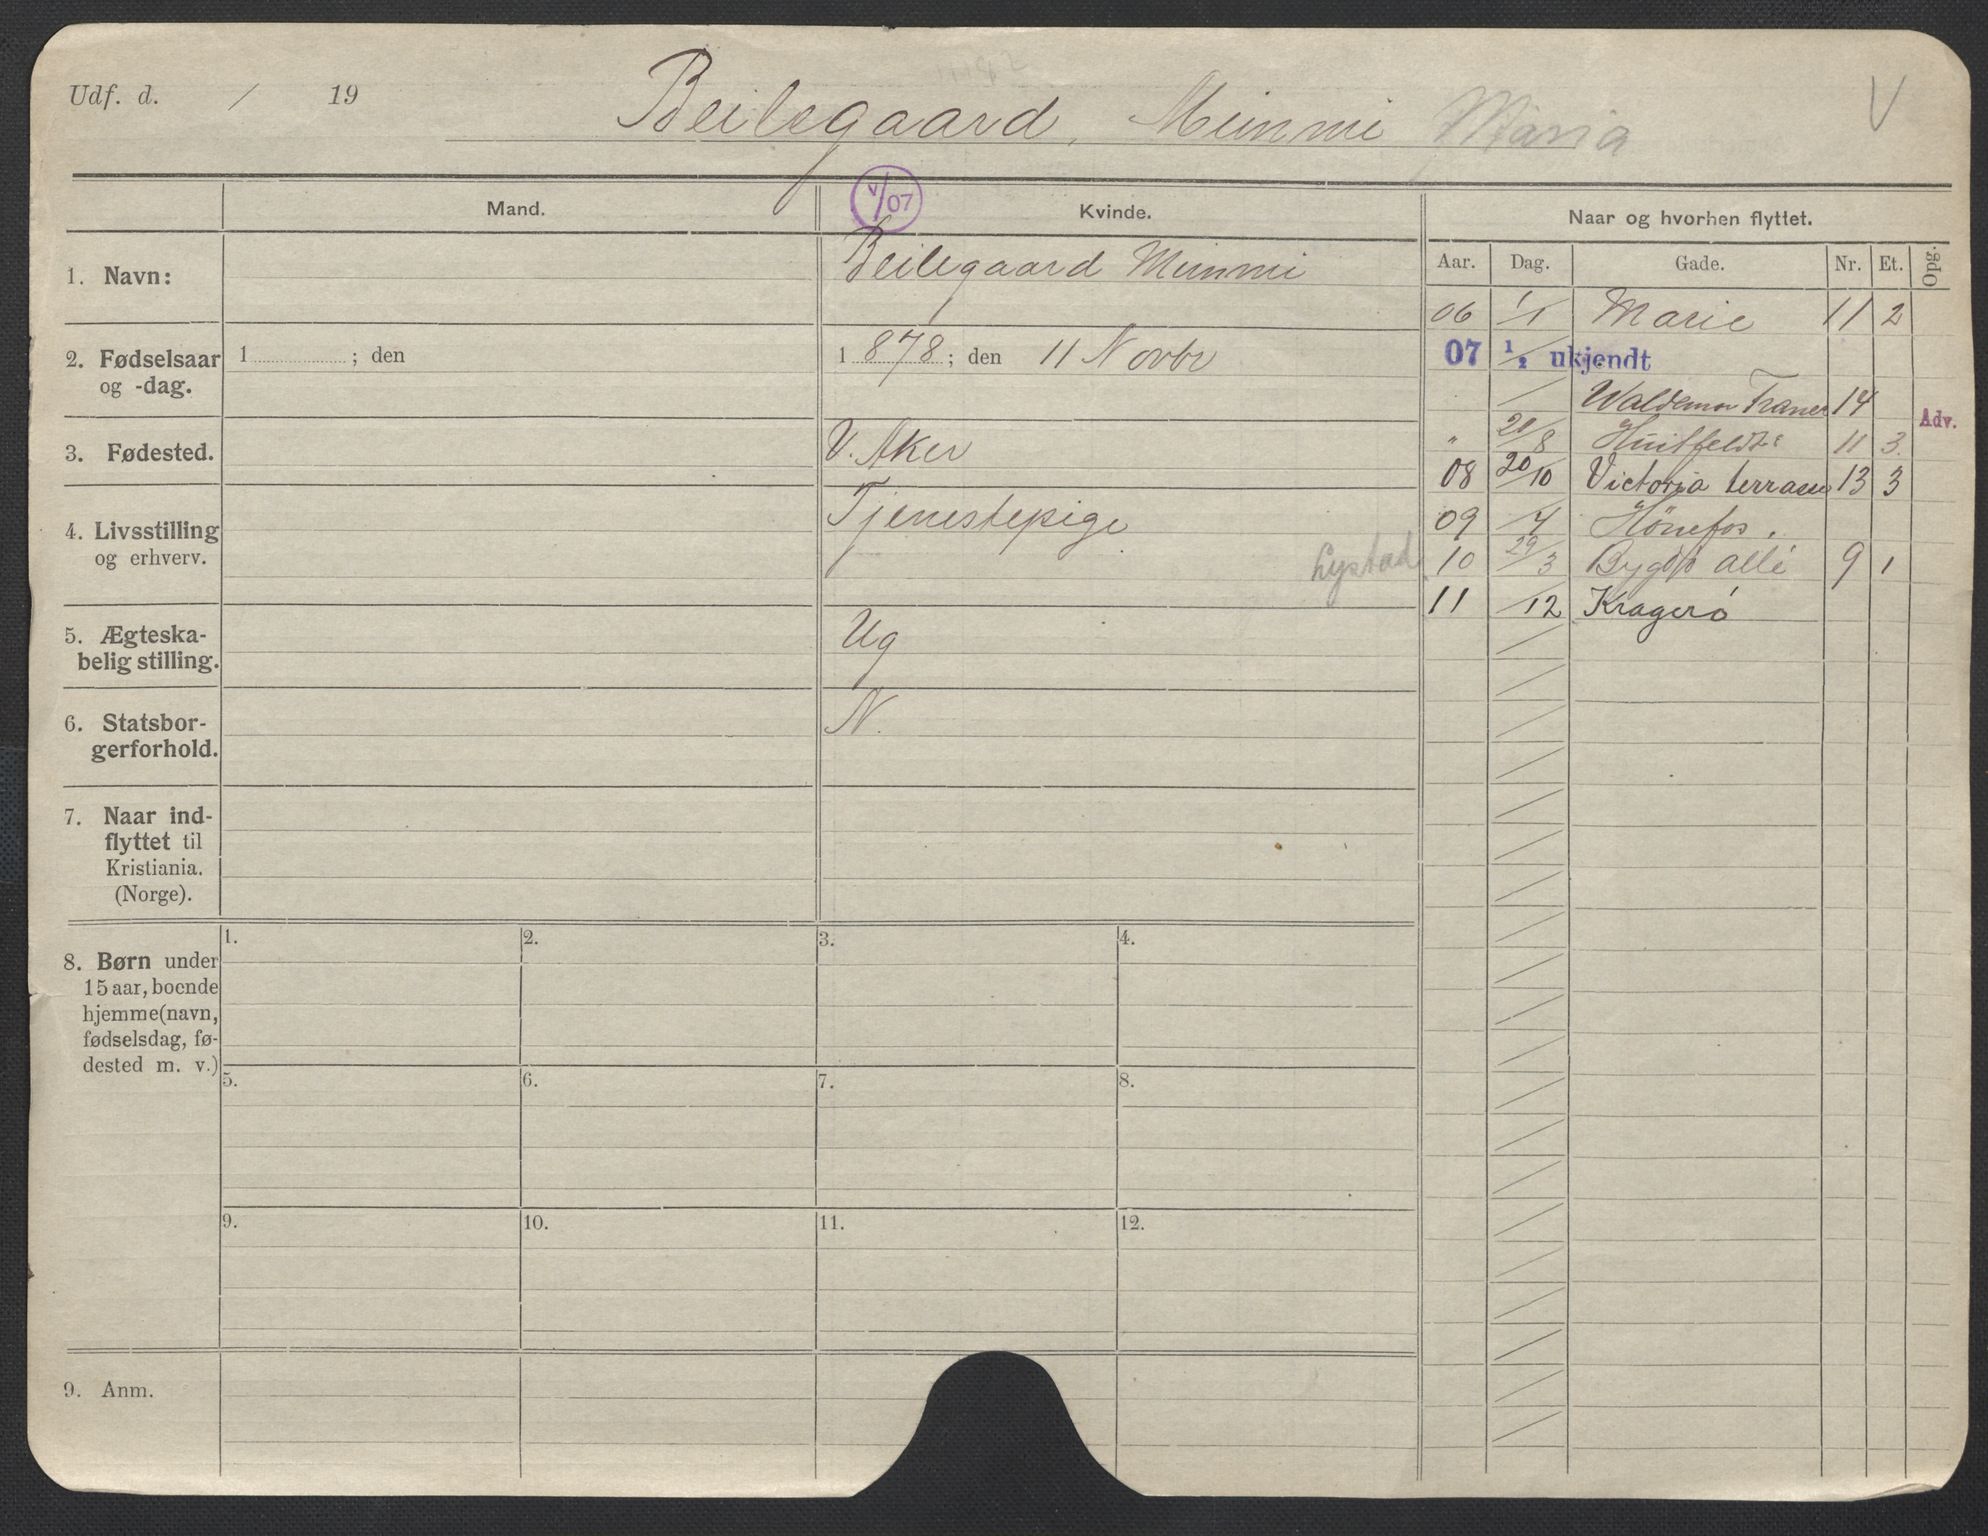 Udf. d. / 19
Beilegaard, Mimmi Maria V
V/07
Mand. Kvinde. Naar og hvorhen flyttet.
Aar. Dag. Gade. Nr. Et. Opg.
1. Navn: Beilegaard Mimmi
06 1/1 Marie 11 2
2. Fødselsaar og -dag. 1 ; den 1 878 ; den 11 Novbr
07 1/2 ukjendt
/ Waldemar Tranes 14 Adv.
3. Fødested. V. Aker
" 20/8 Huitfeldts 11 3.
08 20/10 Victoria terrasse 13 3
4. Livsstilling og erhverv. Tjenestepige
09 /4 Hønefos.
Lystad
10 29/3 Bygdø allé 9 1
11 /12 Kragerø
5. Ægteska-
belig stilling. Ug
6. Statsbor-
gerforhold. N.
7. Naar ind-
flyttet til
Kristiania.
(Norge).
8. Børn under
15 aar, boende
hjemme (navn,
fødselsdag, fø-
dested m. v.)
1. 2. 3. 4.
5. 6. 7. 8.
9. 10. 11. 12.
9. Anm.